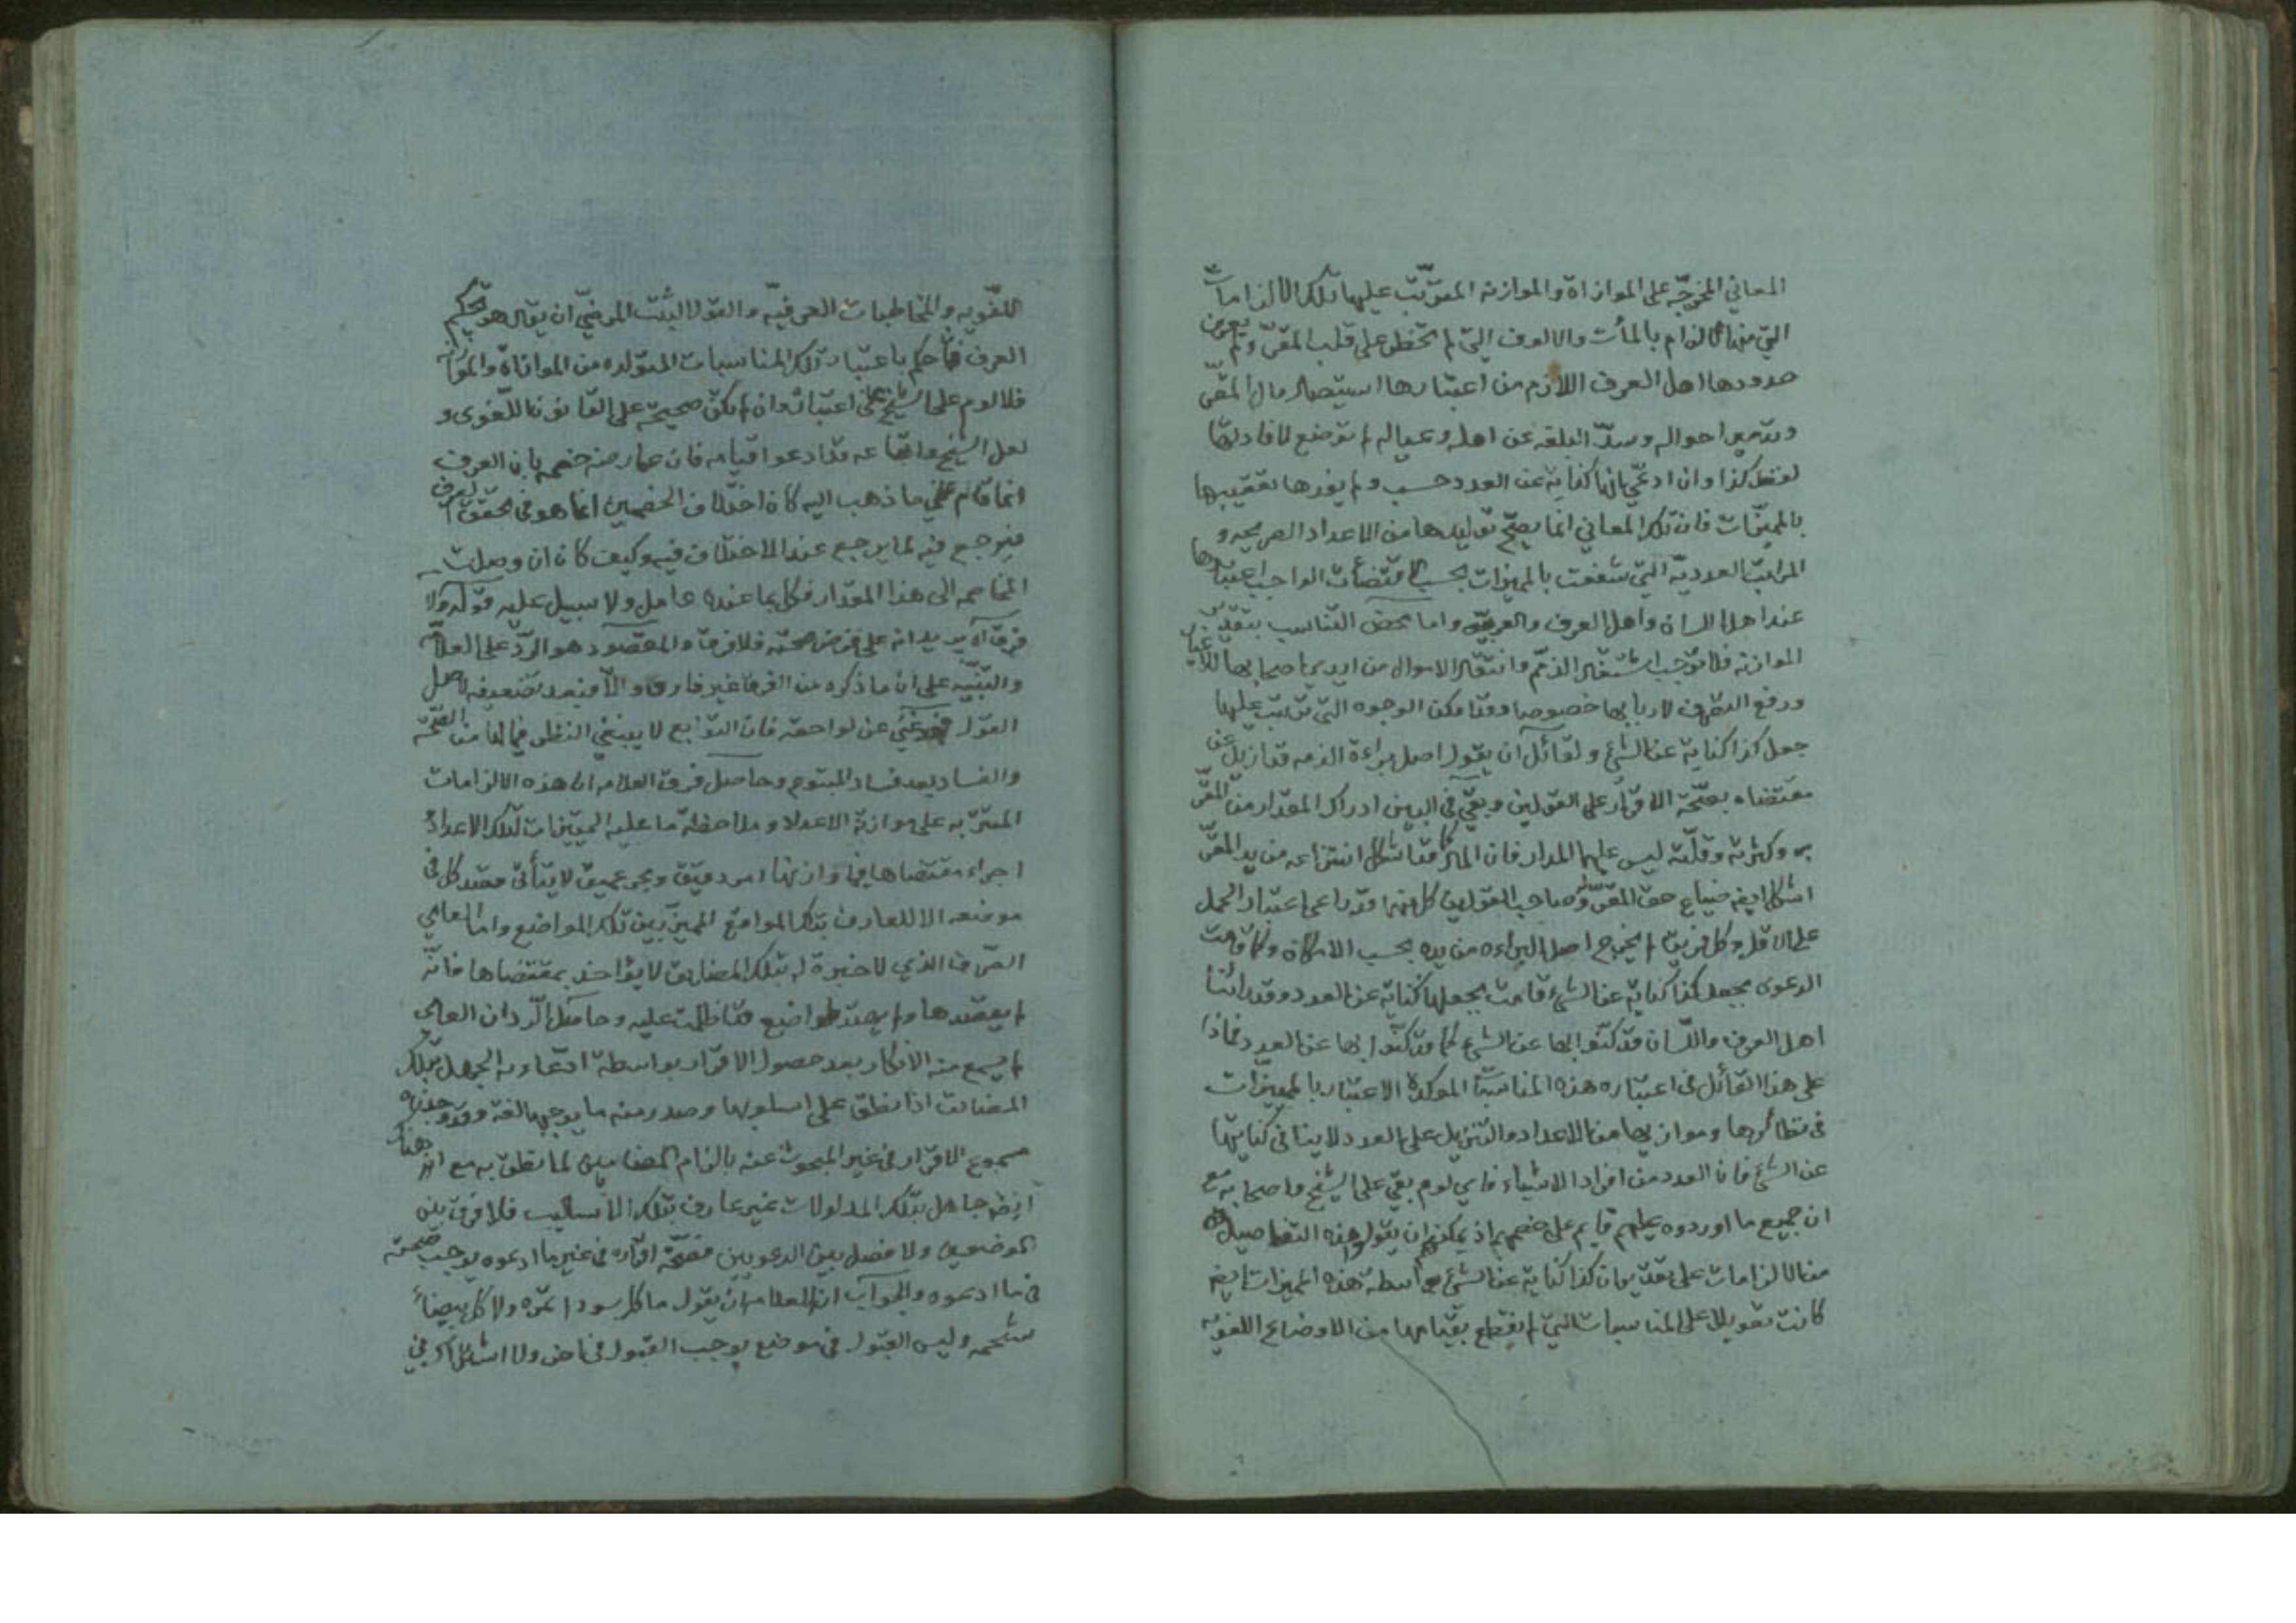 المعاني المخرجّه على الموازاة والموازنه المترتّبت عليها تلك الالزامات
التي منها الالزام بالمأت والالوف التي لم تخطر على قلب المقرّ ولم يعرف
حدودها اهل العرف اللازم من اعتبارها استيصال مال المقر
وتدمير احواله وسدّ البلغه عن اهله وعياله لم توضع لافادتها
لفظ كذا وان ادعّي بانها كناية عن العدد حسب ولم يفدها تعقيبها
بالمميّزات فان تلك المعاني انما يصحّ توليدها من الاعداد الصريحه و
المراتب العدديّه التي شفعت بالمميزات بحسب اقتضأت الواجب اعتبارها
عند اهل اللسان واهل العرف والعربيّه واما محض التناسب بتقدير
الموازنه فلا توجب اشتغال الذمّم وانتقال الاموال من ايدي اصحابها للاغيار
ورفع التصرف لاربابها خصوصا وقد امكن الوجوه التي ترتبت عليها
جعل كذا كناية عن الشئ ولقائل ان يقول اصل براءة الذمه قد ازيل عن
مقتضاه بصحّة الاقرار على القولين وبقي في البين ادراك المقدار من المقرّ
به وكثرته وقلّته ليس عليهما المدار فان المال كما قد اشكل انتزاعه من يد المقرّ
اشكل ايضا ضياع حق المقرّ له وصاحب القولين كل منهما قد راعى اعتبار الحمل
على الاقل وكل فريق لم يخرج اصل البراءه من يده بحسب الامكان وكما قامت
الدعوى بجعل كذا كناية عن الشئ قامت بجعلها كناية عن العدد وقد رأينا
اهل العرف واللّسان قد كنّوا بها عن الشئ كما قد كنّوا بها عن العدد فماذا
على هذا القائل في اعتباره هذه المناسبة الموكدة الاعتبار بالمميّزات
في نظائرها وموازيها من الاعداد والتنزيل على العدد لا ينافي كنايتها
عن الشئ فان العدد من افراد الاشياء فاي لوم بقي على الشيخ واصحابه مع
ان جميع ما اوردوه عليهم قايم على خصمهم اذ يمكنهم ان يقولوا هذه التفاصيل
من الالزامات على تقدير ان كذا كناية عن الشئ بواسطة هذه المميزات ايضا
كانت تعويلا على المناسبات التي لم يقطع بقيامها من الاوضاع اللغويه
اللّغويه والمخاطبات العرفيّه والقول البتّ المرضيّ ان يقال هو تحكيم
العرف فان حكم باعتبار تلك المناسبات المتولده من الموازاة والموازنه
فلا لوم على الشيخ على اعتباره وان لم يكن صحيحة على القانون اللّغوى و
لعل الشيخ واتباعه قد ادعوا قيامه فان عارضه خصمه بان العرف
انما قام على ما ذهب اليه كان اختلاف الخصمين انما هو في تحقق العرف
فيرجع فيه لما يرجع عند الاختلاف فيه وكيف كان ان وصلت
المخاصمه الى هذا المقدار فكل بما عنده عامل ولا سبيل عليه قوله ولا
فرق اه يريد انه على فرض صحته فلا فرق والمقصود هو الردّ على العلامه
والتنبّيه على ان ما ذكره من الفرق غير فارق والّا فبعد تضعيفه لاصل
القول فهو غنيّ عن لواحقه فان التوابع لا ينبغي النظر فيما لها من الصّحّة
والفساد بعد فساد المتبوع وحاصل فرق العلامه ان هذه الالزامات
المترتّبه على موازنة الاعداد وملاحظة ما عليه المميّزات لتلك الاعداد
اجراء مقتضاها فيما وازنها امر دقيق وبحر عميق لا يتأتى قصد كل في
موضعه الا للعارف بتلك المواقع المميّز بين تلك المواضع واما العامي
الصّرف الذي لا خبرة له بتلك المضايق لا يؤاخذ بمقتضاها فانّه
لم يقصدها ولم يهتد لمواضيع قد اظلمت عليه وحاصل الّرد ان العامي
لم يسمع منه الانكار بعد حصول الاقرار بواسطة ادّعاءه الجهل بتلك
المضايق اذا نطق على اسلوبها وصدر منه ما يوجبها لغة وقد وجدناه
مسموع الاقرار في غير المبحوث عنه بالزام المضامين لما نطق به مع انه هناك
ايضا جاهل بتلك المدلولات غير عارف بتلك الاساليب فلا فرق بين
الموضعين ولا فصل بين الدعويين فصّحة اقراره في غير ما ادعوه يوجب صحته
في ما ادعوه والجواب ان للعلامه ان يقول ما كل سوداء تمره ولا كل بيضاء
شحمه وليس القبول في موضع يوجب القبول في اخر ولا اشتراك في